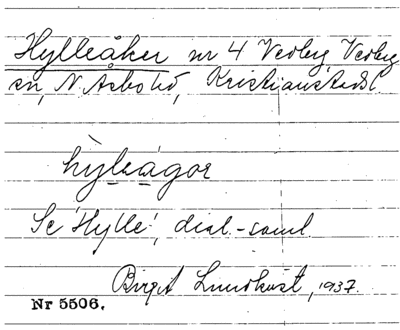 Hylleåker nr 4 Verby, Verby
sn, N Asbo hd, Kristianstads l.
hyleågor
Se 'Hylle', dial-saml
Birgit Lundkvist, 1937.
Nr 5506.